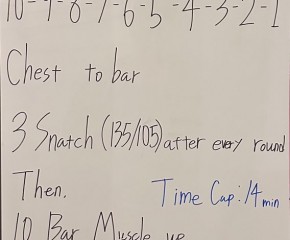 10-9-8-7-6-5-4-3-2-1
Chest to bar
3 Snatch (135/105) after every round
Then. Time Cap: 14 min
10 Bar Muscle up